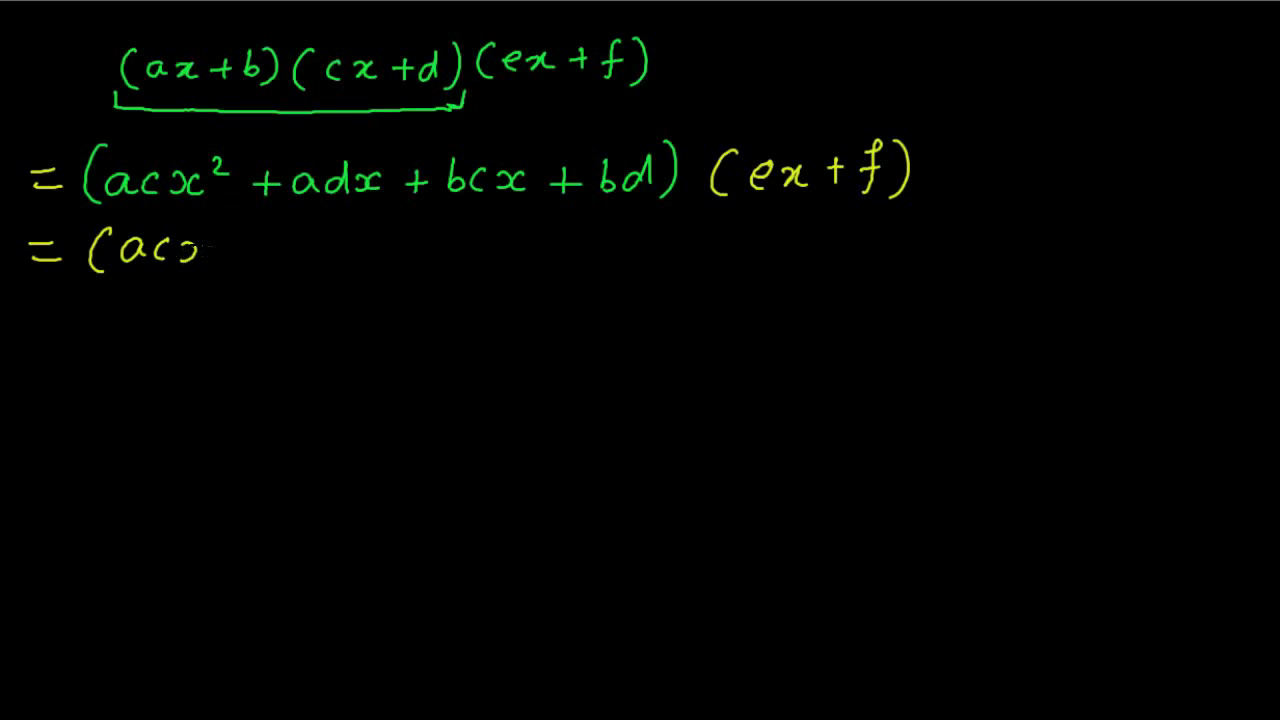 (ax+b)(cx+d)(ex+f)
= (acx² + adx + bcx + bd) (ex + f)
= (acx